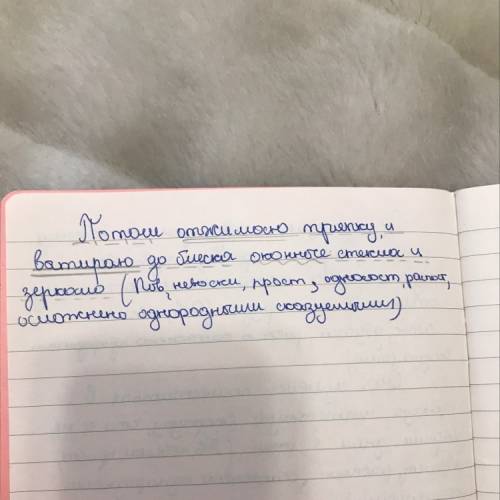 Потом отжимаю тряпку, и
вытираю до блеска оконные стекла и
зеркало (Пов, невоскл, прост, односост, расп,
осложнено однородными сказуемыми)